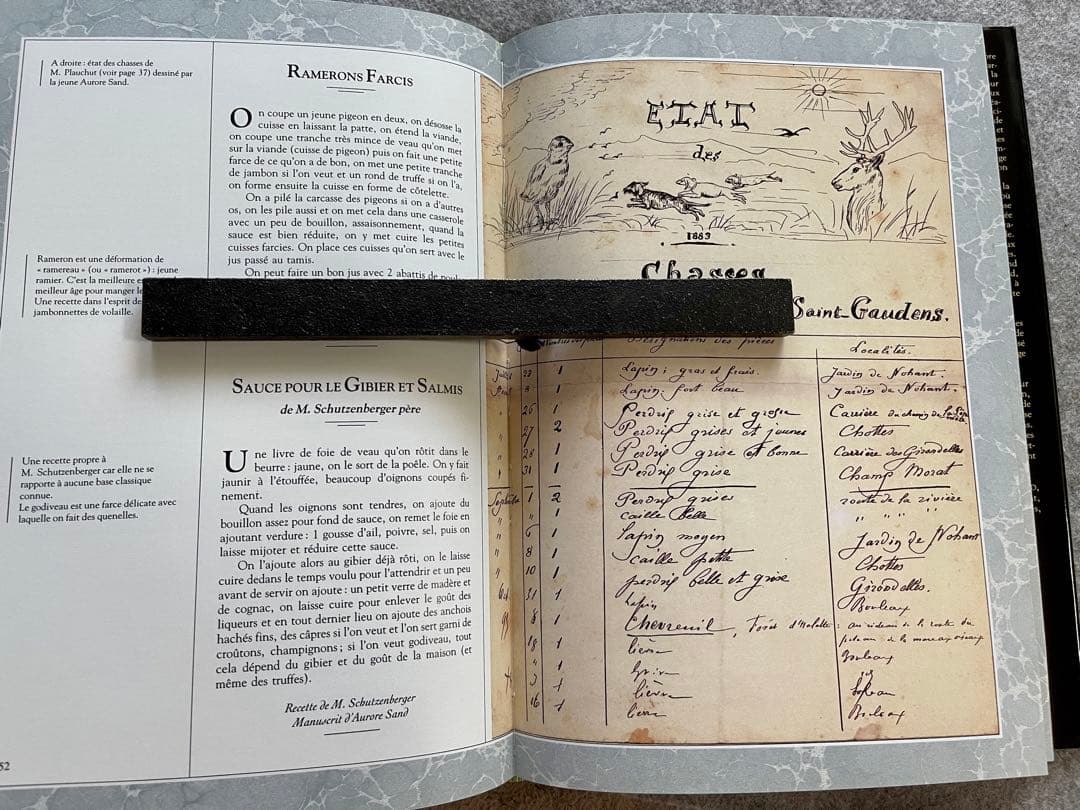 A droite : état des chasses de
M. Plauchut (voir page 37) dessiné par
la jeune Aurore Sand.
RAMERONS FARCIS
On coupe un jeune pigeon en deux, on désosse la
cuisse en laissant la patte, on étend la viande,
on coupe une tranche très mince de veau qu'on met
sur la viande (cuisse de pigeon) puis on fait une petite
farce de ce qu'on a de bon, on met une petite tranche
de jambon si l'on veut et un rond de truffe si on l'a,
on forme ensuite la cuisse en forme de côtelette.
On a pilé la carcasse des pigeons si on a d'autres
os, on les pile aussi et on met cela dans une casserole
avec un peu de bouillon, assaisonnement, quand la
sauce est bien réduite, on y met cuire les petites
cuisses farcies. On place ces cuisses qu'on sert avec le
jus passé au tamis.
On peut faire un bon jus avec 2 abattis de
Rameron est une déformation de
« ramereau » (ou « ramerot ») : jeune
ramier. C'est la meilleure
meilleur âge pour manger
Une recette dans l'esprit
jambonnettes de volaille.
SAUCE POUR LE GIBIER ET SALMIS
de M. Schutzenberger père
Une livre de foie de veau qu'on rôtit dans le
beurre : jaune, on le sort de la poêle. On y fait
jaunir à l'étouffée, beaucoup d'oignons coupés fi-
nement.
Quand les oignons sont tendres, on ajoute du
bouillon assez pour fond de sauce, on remet le foie en
ajoutant verdure : 1 gousse d'ail, poivre, sel, puis on
laisse mijoter et réduire cette sauce.
On l'ajoute alors au gibier déjà rôti, on le laisse
cuire dedans le temps voulu pour l'attendrir et un peu
avant de servir on ajoute : un petit verre de madère et
de cognac, on laisse cuire pour enlever le goût des
liqueurs et en tout dernier lieu on ajoute des anchois
hachés fins, des câpres si l'on veut et l'on sert garni de
croûtons, champignons ; si l'on veut godiveau, tout
cela dépend du gibier et du goût de la maison (et
même des truffes).
Recette de M. Schutzenberger
Manuscrit d'Aurore Sand
Une recette propre à
M. Schutzenberger car elle ne se
rapporte à aucune base classique
connue.
Le godiveau est une farce délicate avec
laquelle on fait des quenelles.
52
ETAT
des
1883
Chasses
Saint-Gaudens.
Désignations des pièces Localités.
22 1 Lapin : gras et frais. Jardin de Nohant.
1 Lapin fort beau Jardin de Nohant.
26 1 Perdrix grise et grosse Carrière du chemin de
27 2 Perdrix grises et jeunes Chottes
28 1 Perdrix grise et bonne Carrière des Girondelles
31 1 Perdrix grise Champ Morat
Septembre 1 2 Perdrix grises route de la rivière
" 1 caille belle " " " "
6 1 Lapin moyen Jardin de Nohant
" 8 1 caille petite Chottes
" 10 1 perdrix belle et grise Girondelles.
31 1 Lapin Bouleaux
8 1 Chevreuil,
18 1 lièvre Bouleaux
1
1 lièvre
16 1 lièvre Bouleaux